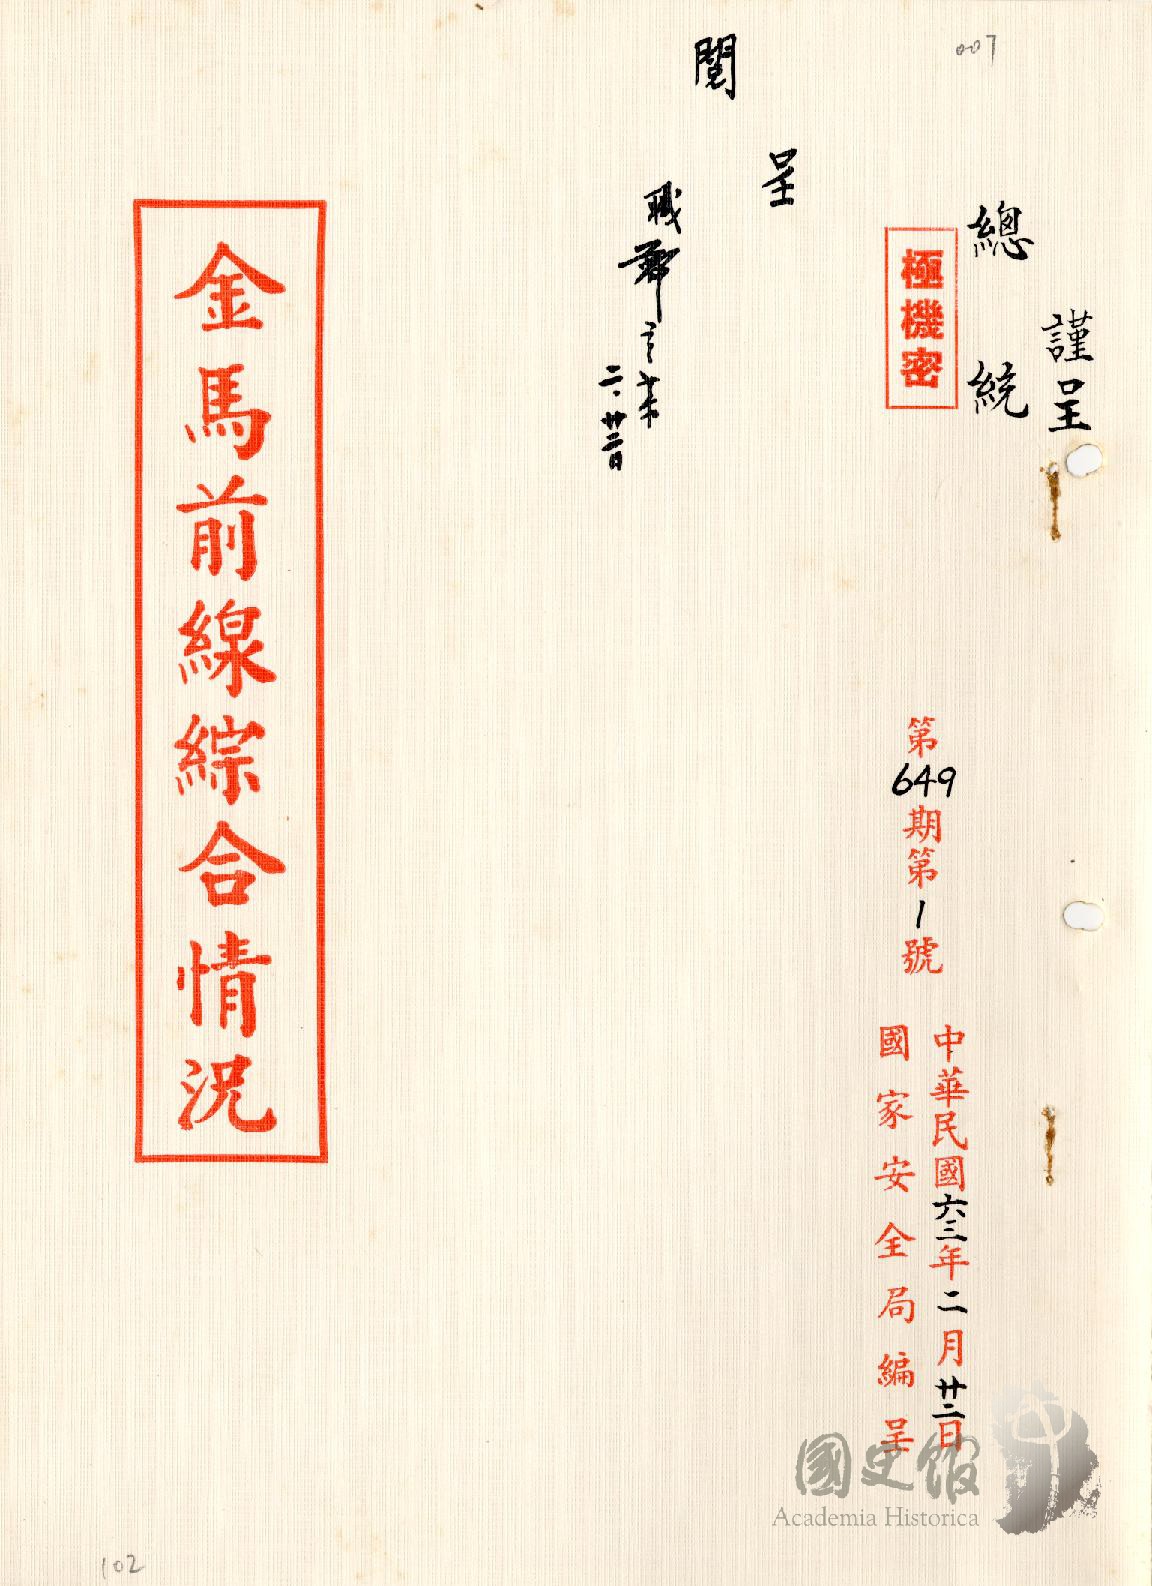 007
謹呈
總統
極機密
第649期第1號
中華民國六三年二月廿二日
國家安全局編呈
呈
閱
職鄭
二、廿二日
金馬前線綜合情況
國史館
Academia Historica
102